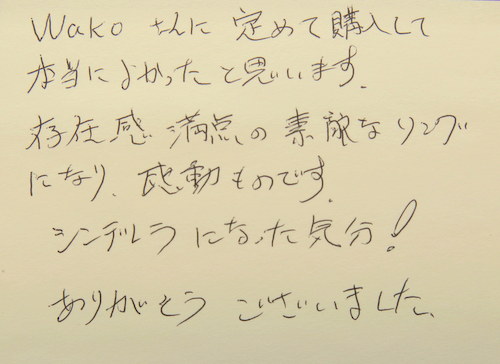 Wako さんに 定めて購入して
本当によかったと思います.
存在感 満点の 素敵なリング
になり、感動ものです.
シンデレラ になった気分!
ありがとう ございました.